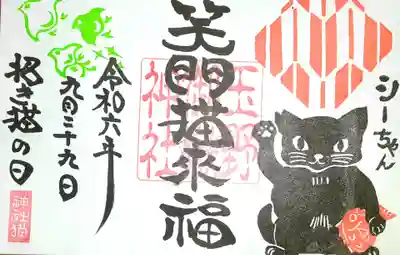 シーちゃん
笑門猫来福
玉野
神社
令和六年
九月二十九日
招き猫の日
神社猫